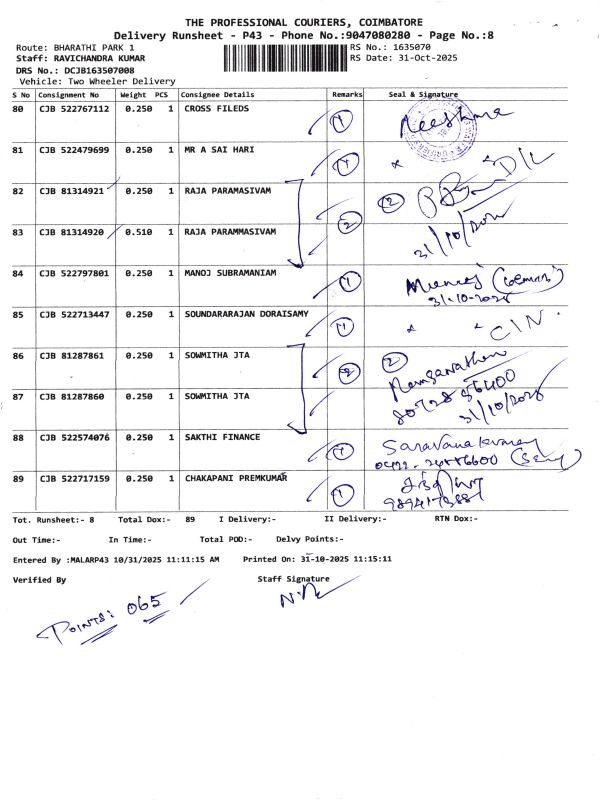 THE PROFESSIONAL COURIERS, COIMBATORE
Delivery Runsheet - P43 - Phone No.:9047080280 - Page No.:8
Route: BHARATHI PARK 1 RS No.: 1635070
Staff: RAVICHANDRA KUMAR RS Date: 31-Oct-2025
DRS No.: DCJB163507008
Vehicle: Two Wheeler Delivery
S No Consignment No Weight PCS Consignee Details Remarks Seal & Signature
80 CJB 522767112 0.250 1 CROSS FILEDS 1
81 CJB 522479699 0.250 1 MR A SAI HARI 1 D/L
82 CJB 81314921 0.250 1 RAJA PARAMASIVAM 2 2
83 CJB 81314920 0.510 1 RAJA PARAMMASIVAM 31/10/2025
84 CJB 522797801 0.250 1 MANOJ SUBRAMANIAM 1 Manoj
31-10-2025
85 CJB 522713447 0.250 1 SOUNDARARAJAN DORAISAMY 1 C/N
86 CJB 81287861 0.250 1 SOWMITHA JTA 2 2
87 CJB 81287860 0.250 1 SOWMITHA JTA 80728 56400
31/10/2025
88 CJB 522574076 0.250 1 SAKTHI FINANCE 1 Saravana kumar
89 CJB 522717159 0.250 1 CHAKAPANI PREMKUMAR 1
Tot. Runsheet:- 8 Total Dox:- 89 I Delivery:- II Delivery:- RTN Dox:-
Out Time:- In Time:- Total POD:- Delvy Points:-
Entered By :MALARP43 10/31/2025 11:11:15 AM Printed On: 31-10-2025 11:15:11
Verified By Staff Signature
POINTS: 065